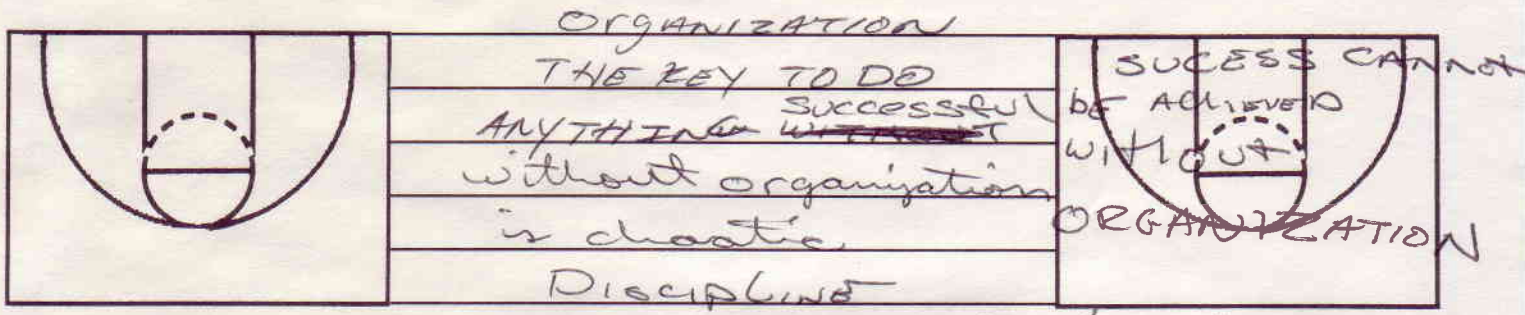 OrgANIZATION
THE KEY TO DO
SUCCESSful
ANYTHING WITHOUT
without organization
is chaotic
DISCIPLINE
SUCESS CANNOT
bE ACHIEVED
WITHOUT
ORGANIZATION